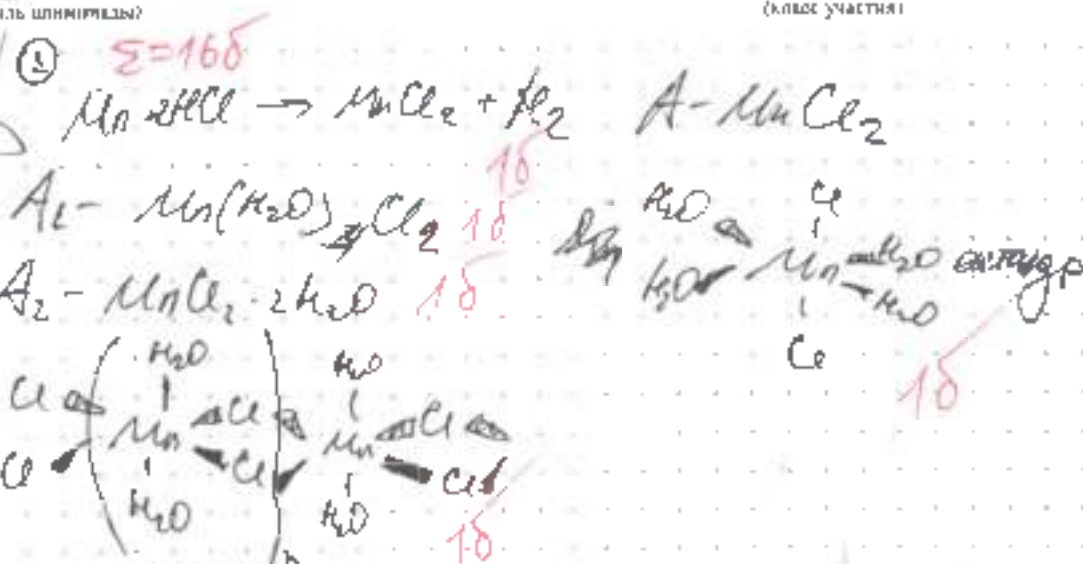 (класс участия)
② Σ=16б
Mn 2HCl → MnCl₂ + H₂ A - MnCl₂
1б
A₁ - Mn(H₂O)₄Cl₂ 1б
A₂ - MnCl₂ · 2H₂O 1б
H₂O Cl
H₂O Mn H₂O
H₂O
Cl
1б
H₂O H₂O
Cl Mn Cl Mn Cl
Cl Cl Cl
H₂O H₂O
n
1б